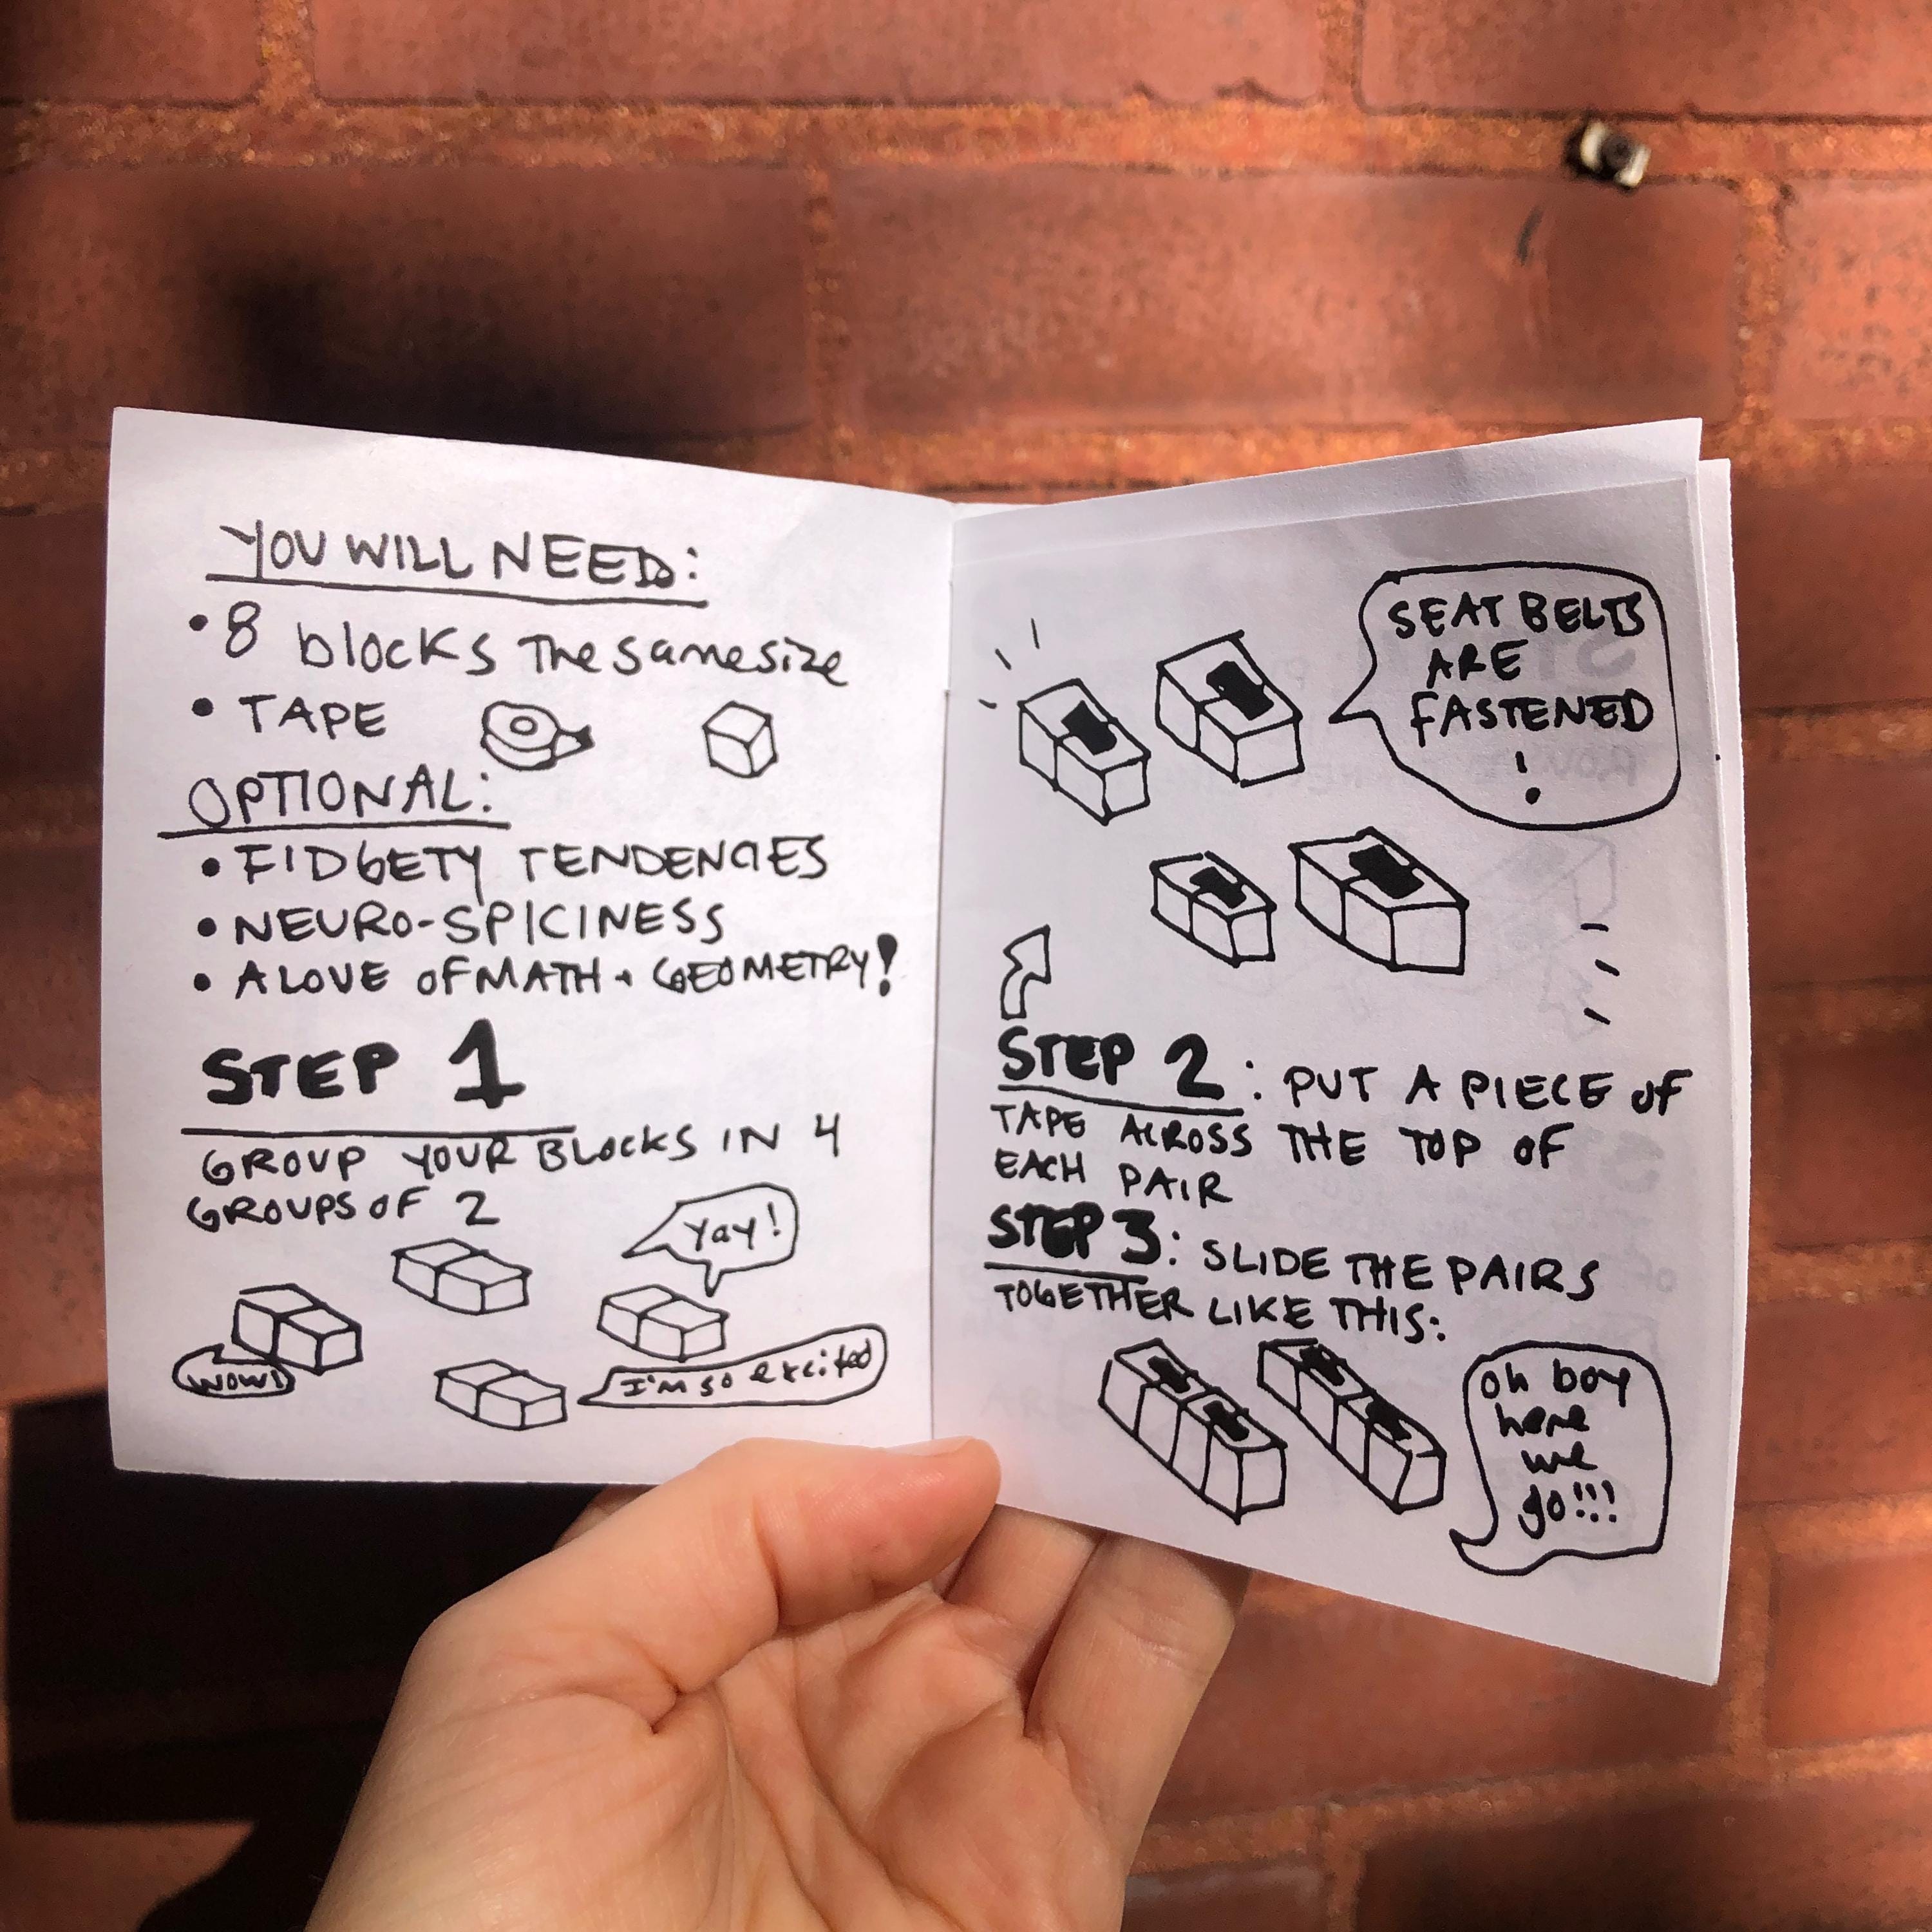 YOU WILL NEED:
• 8 blocks The same size
• TAPE
OPTIONAL:
• FIDGETY TENDENCIES
• NEURO-SPICINESS
• A LOVE OF MATH + GEOMETRY!
STEP 1
GROUP YOUR BLOCKS IN 4
GROUPS OF 2
yay!
WOW!
I'm so excited
SEAT BELTS
ARE
FASTENED
!
STEP 2: PUT A PIECE OF
TAPE ACROSS THE TOP OF
EACH PAIR
STEP 3: SLIDE THE PAIRS
TOGETHER LIKE THIS:
Oh boy
here
we
go!!!